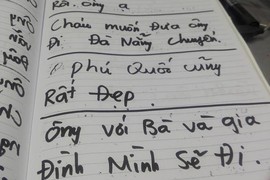 Rồi. ông ạ
Cháu muốn Đưa ông
Đi Đà Nẵng chuyến.
phú Quốc cũng
Rất Đẹp.
Ông với Bà và gia
Đình Mình Sẽ Đi.